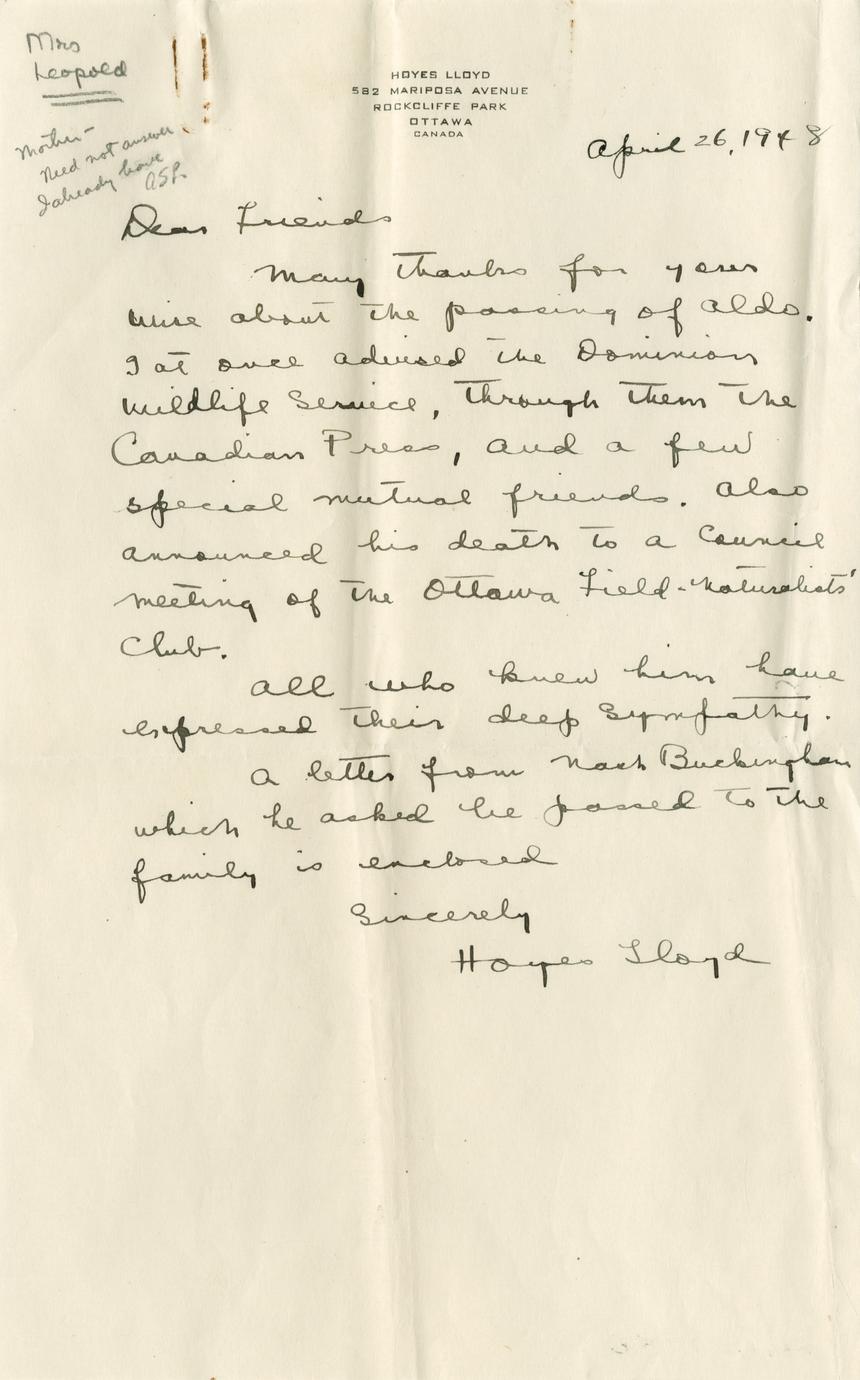 Mrs
Leopold
Mother-
Need not answer
I already have
ASL
HOYES LLOYD
582 MARIPOSA AVENUE
ROCKCLIFFE PARK
OTTAWA
CANADA
April 26, 1948
Dear Friends
Many thanks for your
wire about the passing of Aldo.
I at once advised the Dominion
Wildlife Service, through them the
Canadian Press, and a few
special mutual friends. Also
announced his death to a Council
meeting of the Ottawa Field-Naturalists'
Club.
All who knew him have
expressed their deep sympathy.
A letter from Nash Buckingham
which he asked be passed to the
family is enclosed
Sincerely
Hoyes Lloyd